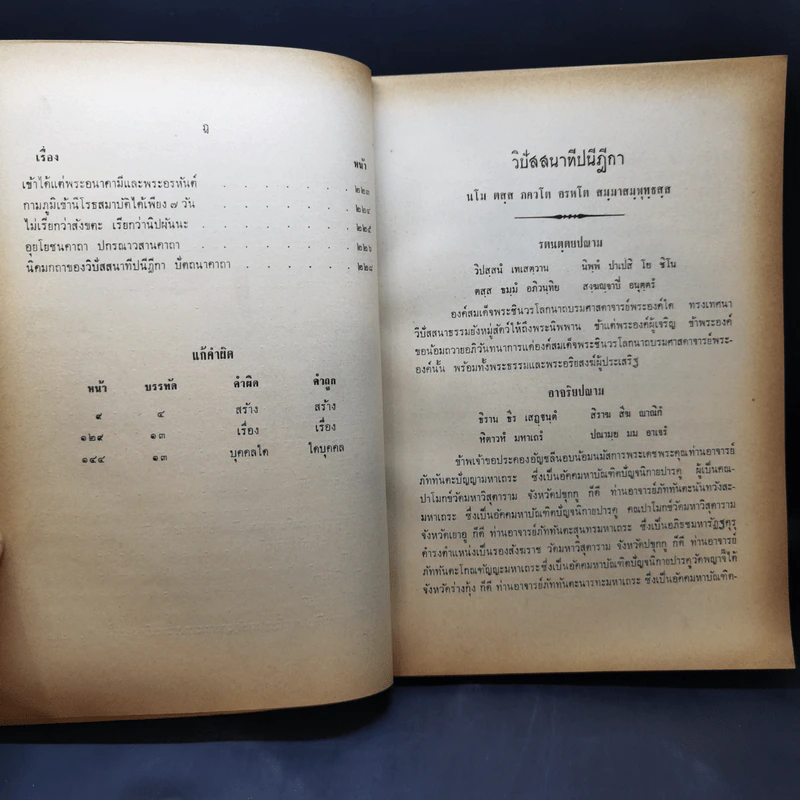 ฎ
เรื่อง หน้า
เข้าได้แต่พระอนาคามีและพระอรหันต์ . . . . . . ๒๒๓
กามภูมิเข้านิโรธสมาบัติได้เพียง ๗ วัน . . . . . . ๒๒๔
ไม่เรียกว่าสังขตะ เรียกว่านิปผันนะ . . . . . . ๒๒๕
อุยโยชนคาถา ปกรณาวสานคาถา . . . . . . ๒๒๖
นิคมกถาของวิปัสสนาทีปนีฎีกา ปัตถนาคาถา . . . . . ๒๒๘
แก้คำผิด
หน้า บรรทัด คำผิด คำถูก
๙ ๔ สร้าง สร้าง
๑๒๙ ๑๓ เรื่อง เรื่อง
๑๔๔ ๑๓ บุคคลใด ใดบุคคล
วิปัสสนาทีปนีฎีกา
นโม ตสฺส ภควโต อรหโต สมฺมาสมฺพุทฺธสฺส
รตนตฺตยปณาม
วิปสฺสนํ เทเสตฺวาน นิพฺพํ ปาเปสิ โย ชิโน
ตสฺส ธมฺมํ อภิวนฺทิย สงฺฆญฺจาปี อนุตฺตรํ
องค์สมเด็จพระชินวรโลกนาถบรมศาสดาจารย์พระองค์ใด ทรงเทศนา
วิปัสสนาธรรมยังหมู่สัตว์ให้ถึงพระนิพพาน ข้าแต่พระองค์ผู้เจริญ ข้าพระองค์
ขอน้อมถวายอภิวันทนาการแด่องค์สมเด็จพระชินวรโลกนาถบรมศาสดาจารย์พระ-
องค์นั้น พร้อมทั้งพระธรรมและพระอริยสงฆ์ผู้ประเสริฐ
อาจริยปณาม
ธิราน ธีร เสฏฺฐนฺตํ สิราฆ สีฆ ญาณิกํ
หิตาวหํ มหาเถรํ ปณามฺย มม อาเจรํ
ข้าพเจ้าขอประคองอัญชลีนอบน้อมนมัสการพระเดชพระคุณท่านอาจารย์
ภัททันตะปัญญามหาเถระ ซึ่งเป็นอัคคมหาบัณฑิตปัญจนิกายปารคู ผู้เป็นคณ-
ปาโมกข์วัดมหาวิสุตาราม จังหวัดปขุกกู ก็ดี ท่านอาจารย์ภัททันตะนันทวังสะ-
มหาเถระ ซึ่งเป็นอัคคมหาบัณฑิตปัญจนิกายปารคู คณปาโมกข์วัดมหาวิสุตาราม
จังหวัดเยาอู ก็ดี ท่านอาจารย์ภัททันตะสุนทรมหาเถระ ซึ่งเป็นอภิธชมหารัฏฐคุรุ
ดำรงตำแหน่งเป็นรองสังฆราช วัดมหาวิสุตาราม จังหวัดปขุกกู ก็ดี ท่านอาจารย์
ภัททันตะโกณฑัญญะมหาเถระซึ่งเป็นอัคคมหาบัณฑิตปัญจนิกายปารคูวัดพญาจีใต้
จังหวัดร่างกุ้ง ก็ดี ท่านอาจารย์ภัททันตะนารทะมหาเถระ ซึ่งเป็นอัคคมหาบัณฑิต-